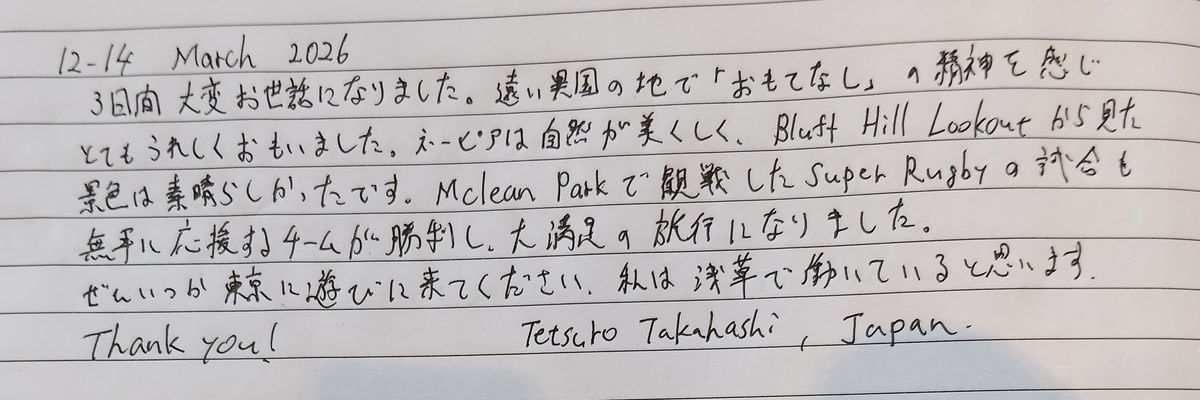 12-14 March 2026
3日間 大変お世話になりました。遠い異国の地で「おもてなし」の精神を感じ
とてもうれしくおもいました。ネーピアは自然が美くしく、Bluff Hill Lookoutから見た
景色は素晴らしかったです。Mclean Parkで観戦したSuper Rugbyの試合も
無事に応援するチームが勝利し、大満足の旅行になりました。
ぜひいつか東京に遊びに来てください。私は浅草で働いていると思います.
Thank you! Tetsuro Takahashi, Japan.